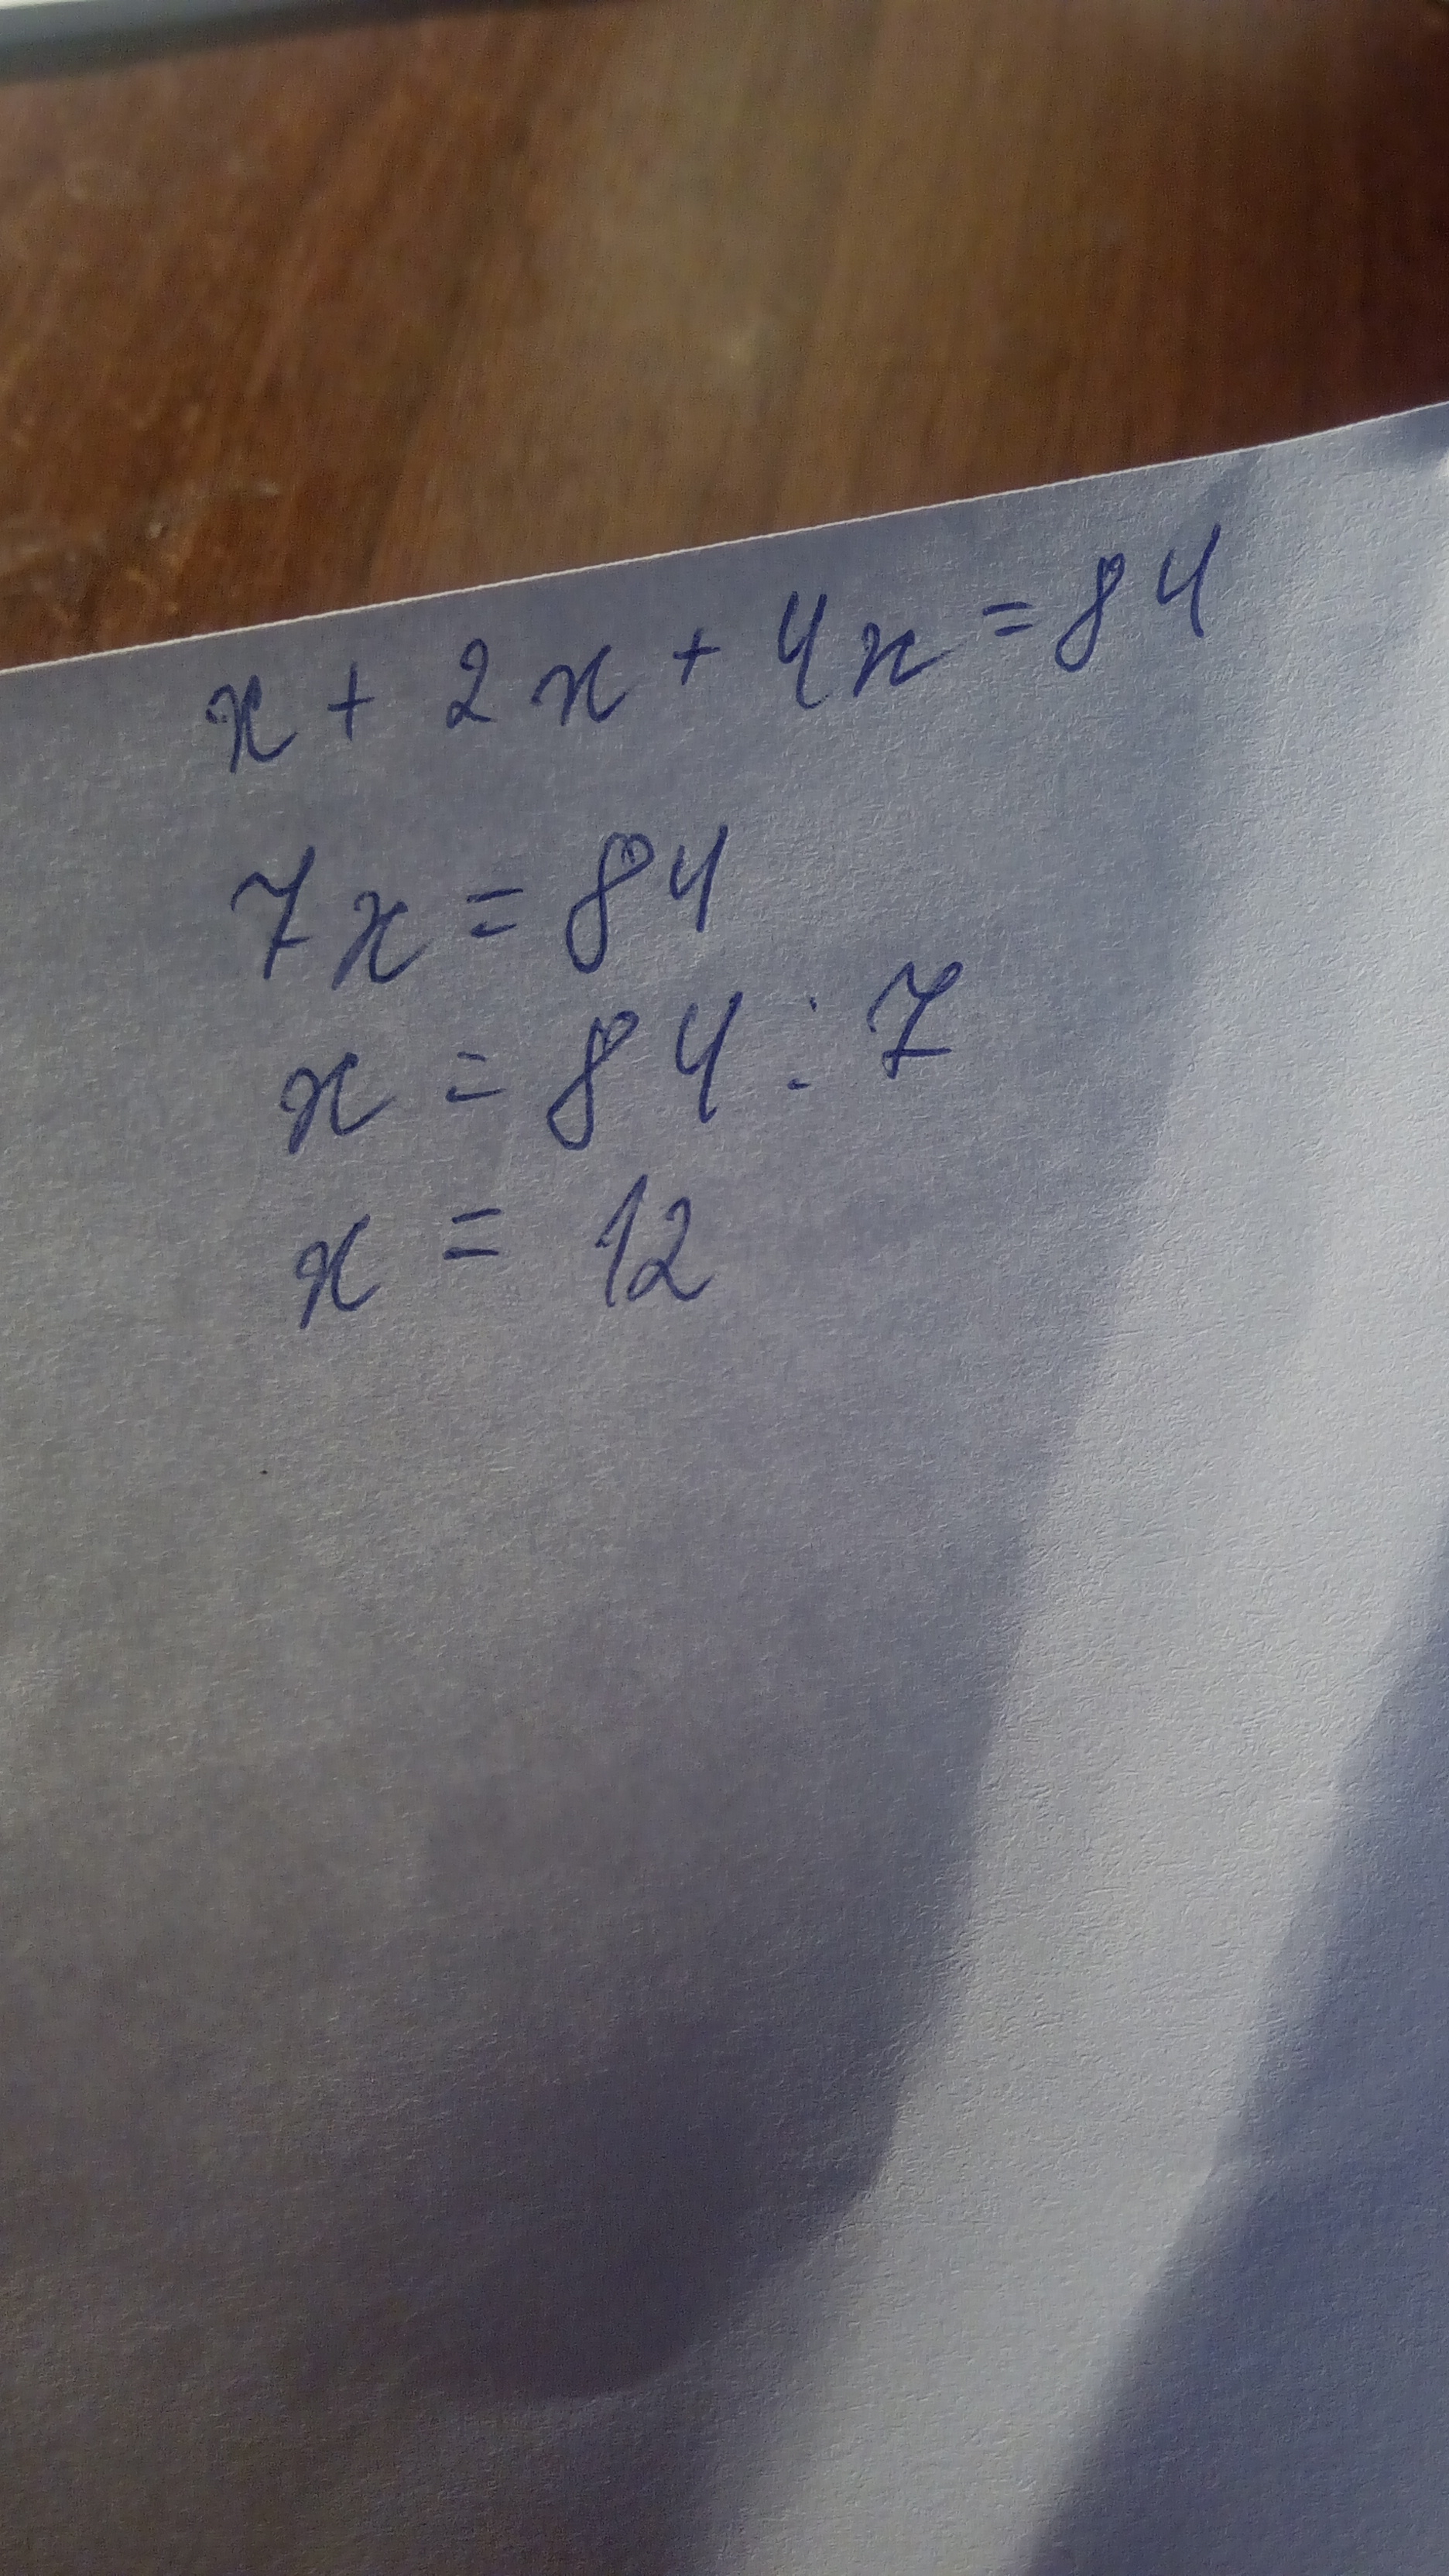 x + 2x + 4x = 84
7x = 84
x = 84 : 7
x = 12